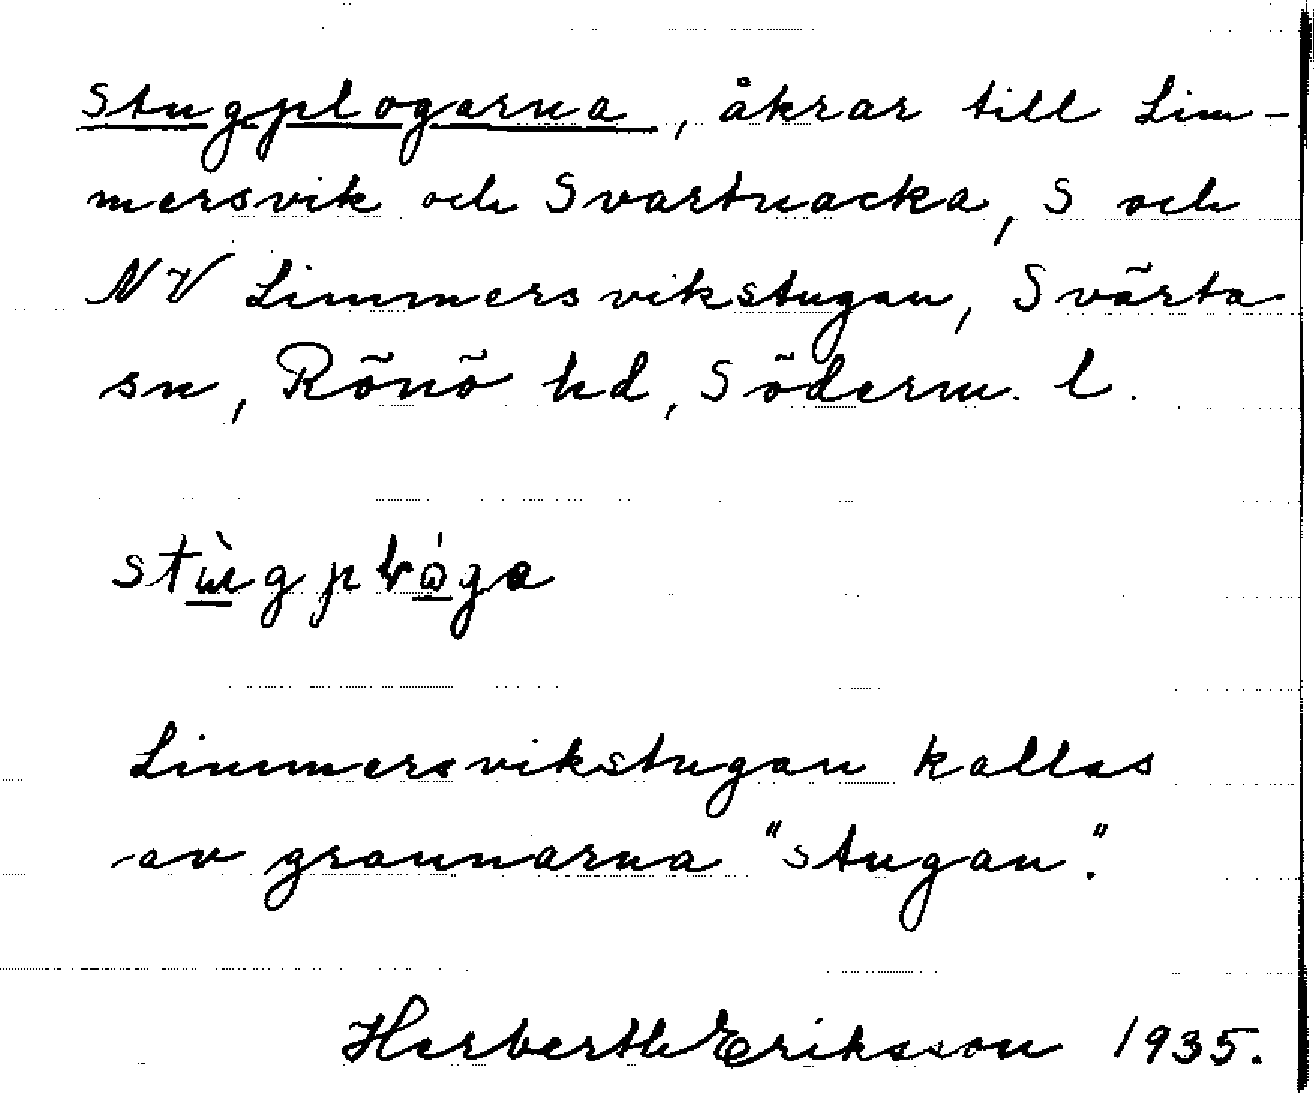 Stugplogarna, åkrar till Lim-
mersvik och Svartnacka, S och
NV Limmersvikstugan, Svärta
sn, Rönö hd, Söderm. l.
Limmersvikstugan kallas
av grannarna "stugan".
Herberth Eriksson 1935.